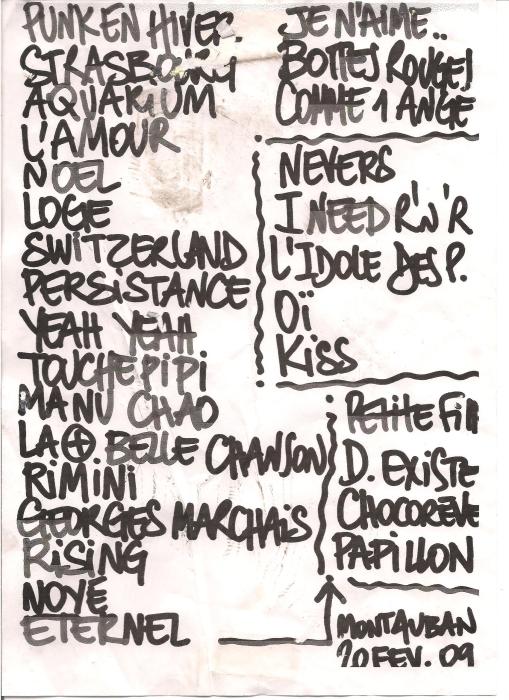 PUNK EN HIVER.
STRASBOURG
AQUARIUM
L'AMOUR
NOEL
LOGE
SWITZERLAND
PERSISTANCE
YEAH YEAH
TOUCHE PIPI
MANU CHAO
LA ⊕ BELLE CHANSON
RIMINI
GEORGES MARCHAIS
RISING
NOYÉ
ETERNEL
JE N'AIME..
BOTTES ROUGES
COMME 1 ANGE
NEVERS
I NEED R'N'R
L'IDOLE DES P.
OÏ
KISS
PETITE FILL
D. EXISTE
CHOCORÊVE
PAPILLON
MONTAUBAN
20 FEV. 09